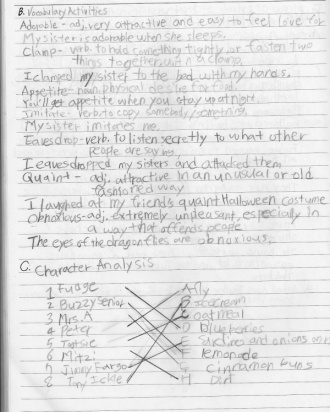 B. Vocabulary Activities
Adorable - adj. very attractive and easy to feel love for
My sister is adorable when she sleeps.
Clamp - verb. to hold something tightly or fasten two
things together with a clamp.
I clamped my sister to the bed with my hands.
Appetite - noun. physical desire for food.
You'll get appetite when you stay up at night.
Imitate - verb. to copy somebody/something.
My sister imitates me.
Eavesdrop - verb. to listen secretly to what other
people are saying.
I eavesdropped my sisters and attacked them.
Quaint - adj. attractive in an unusual or old
fashioned way
I laughed at my friend's quaint Halloween costume
Obnoxious - adj. extremely unpleasant, especially in
a way that offends people
The eyes of the dragonflies are obnoxious.
C. Character Analysis
1 Fudge A Fly
2 Buzzy Senior B Icecream
3 Mrs. A C oatmeal
4 Peter D blueberries
5 Tootsie E Sardines and onions on
6 Mitzi F lemonade
7 Jimmy Fargo G Cinnamon buns
8 Tiny Ickle H Dirt